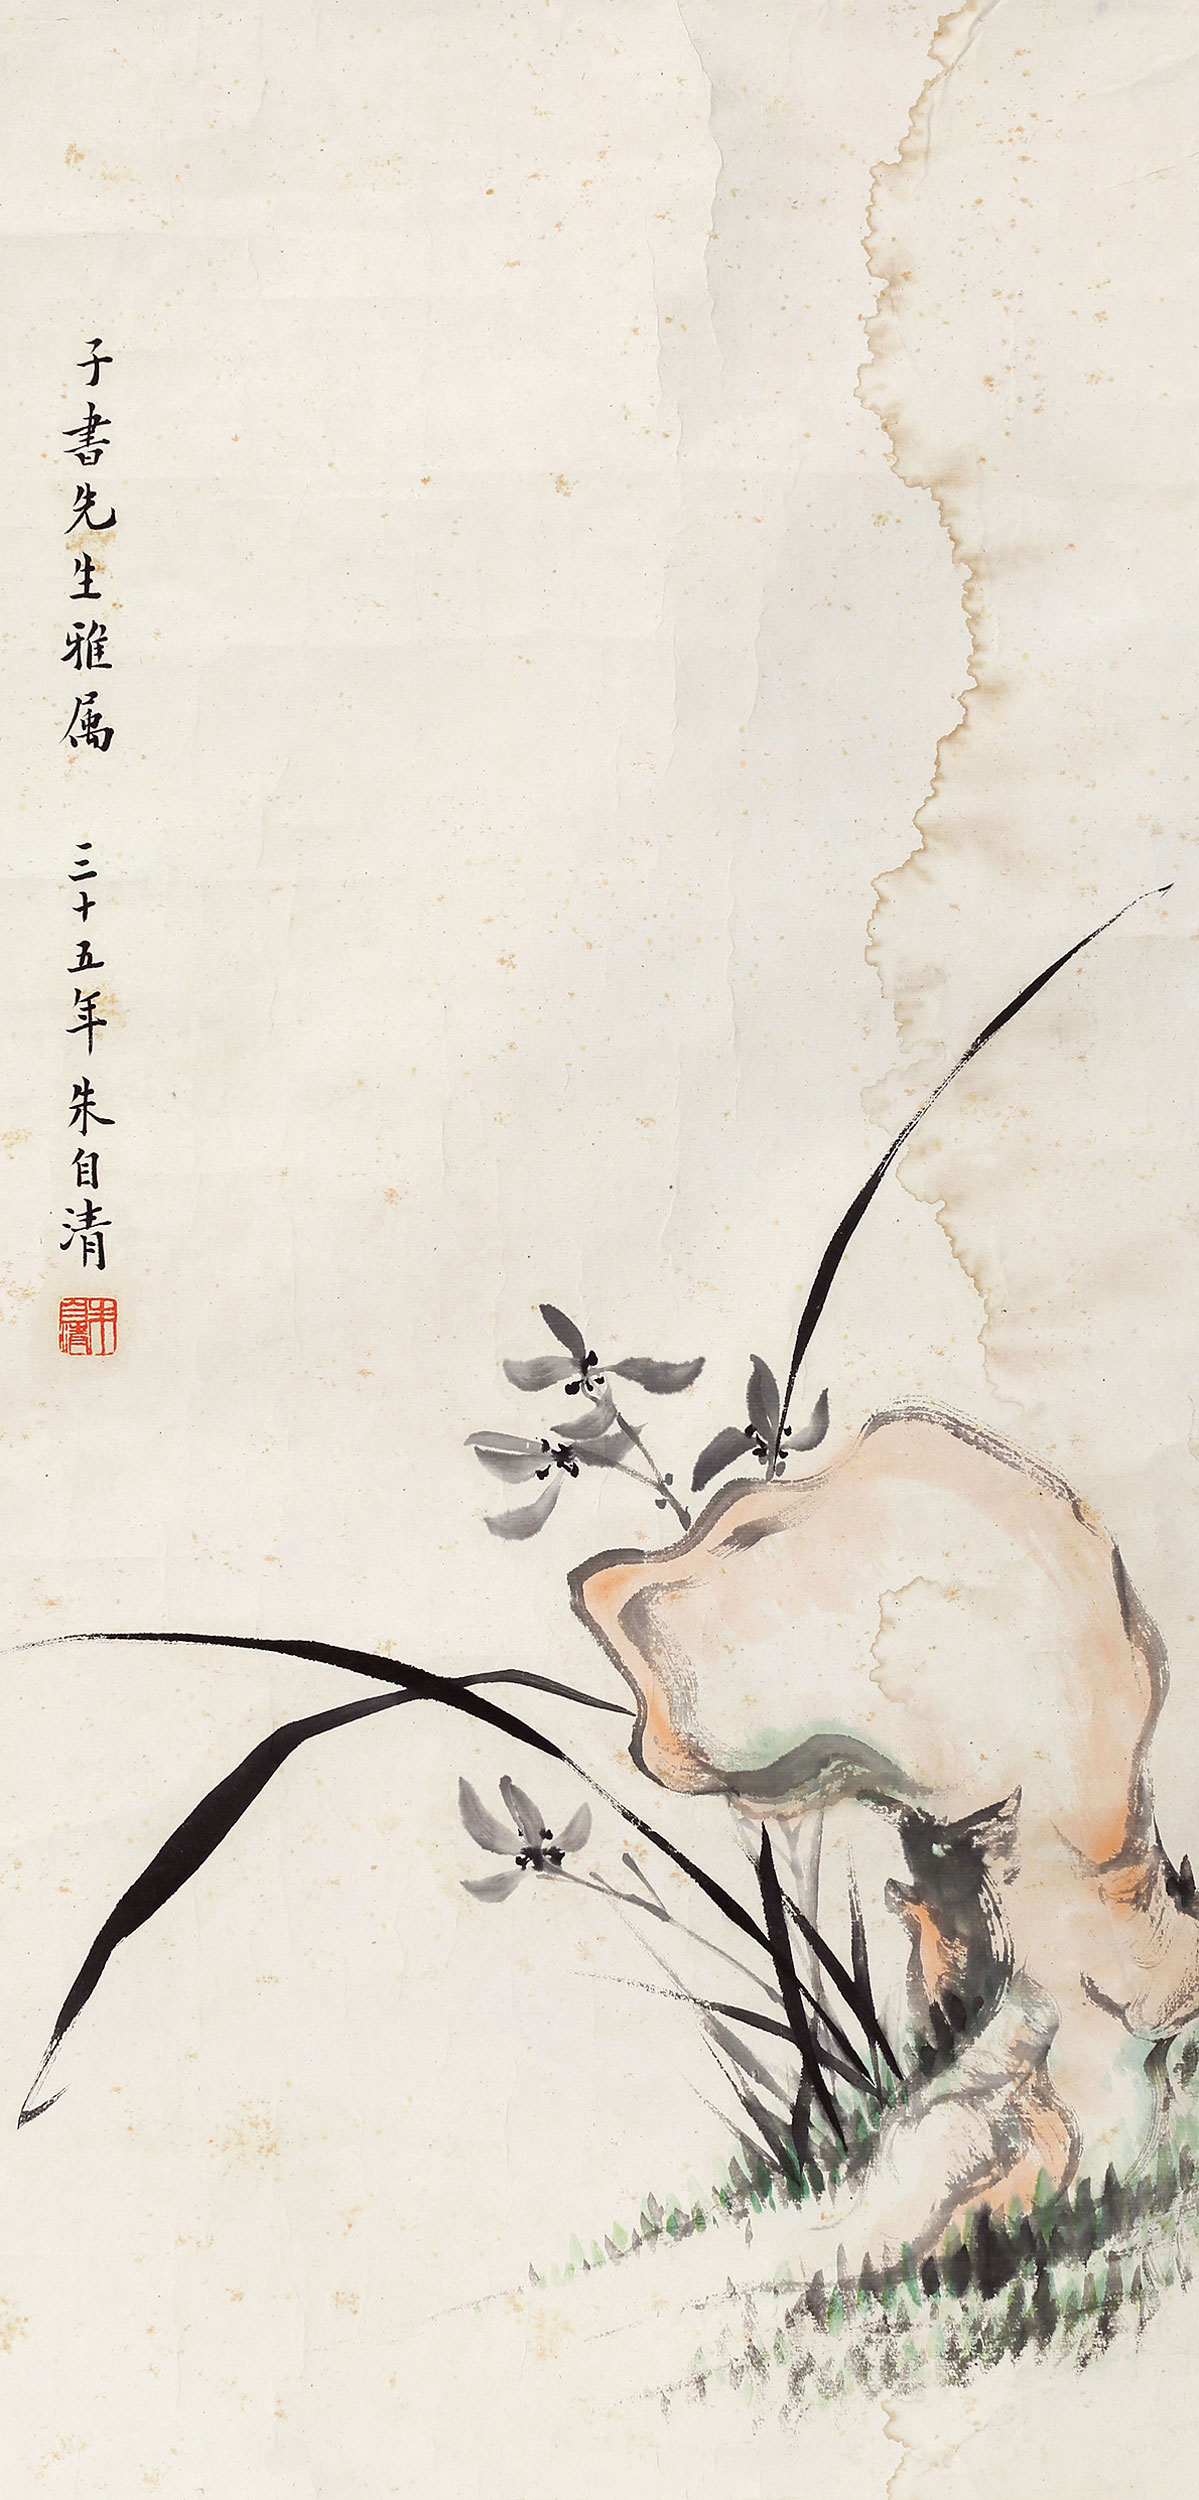 子書先生雅属 三十五年 朱自清
朱自清